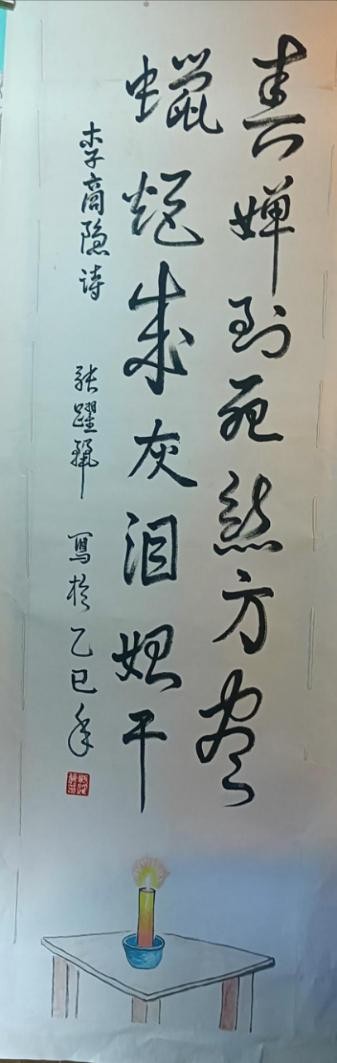 春婵到死丝方尽
蜡炬成灰泪始干
李商隐诗 张躍 写於乙巳年